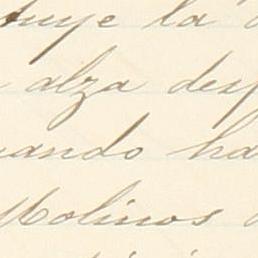 tuye la
alza des
uando ha
Molinos